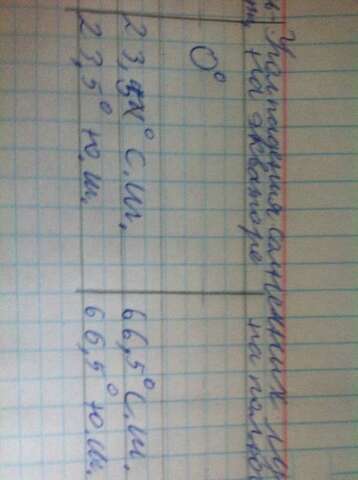 Угол падения солнечных лу
на экваторе на полюс
0°
23,5° с.ш. 66,5° с.ш.
23,5° ю.ш. 66,5° ю.ш.